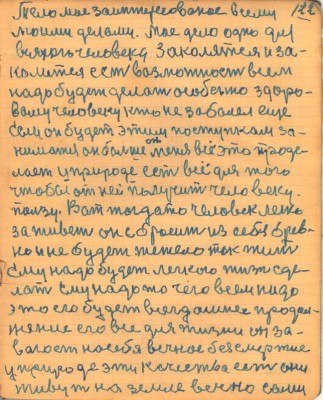 122
Тело мое заинтересованое всеми
моими делами. Мое дело одно для
всякого человека Закалятся и за-
калится ест возможност всем
надо будет делат особенно здоро-
вому человеку кто не заболел еще
Если он будет этим поступкам за-
ниматся он больше меня всё это проде-
он
лает у природе ест всё для того
чтобы от ней получит человеку.
ползу. Вот тогда то человек легко
заживет он сбросит из себя брев-
но и не будет тежело так жит
Ему надо будет легкого тиж сде-
лат Ему надо то чего всем надо
это его будет всегдашнее продол-
жение его все для жизни он за-
воюет на себя вечное безсмертие
у природе эти качества ест они
живут на земле вечно сами